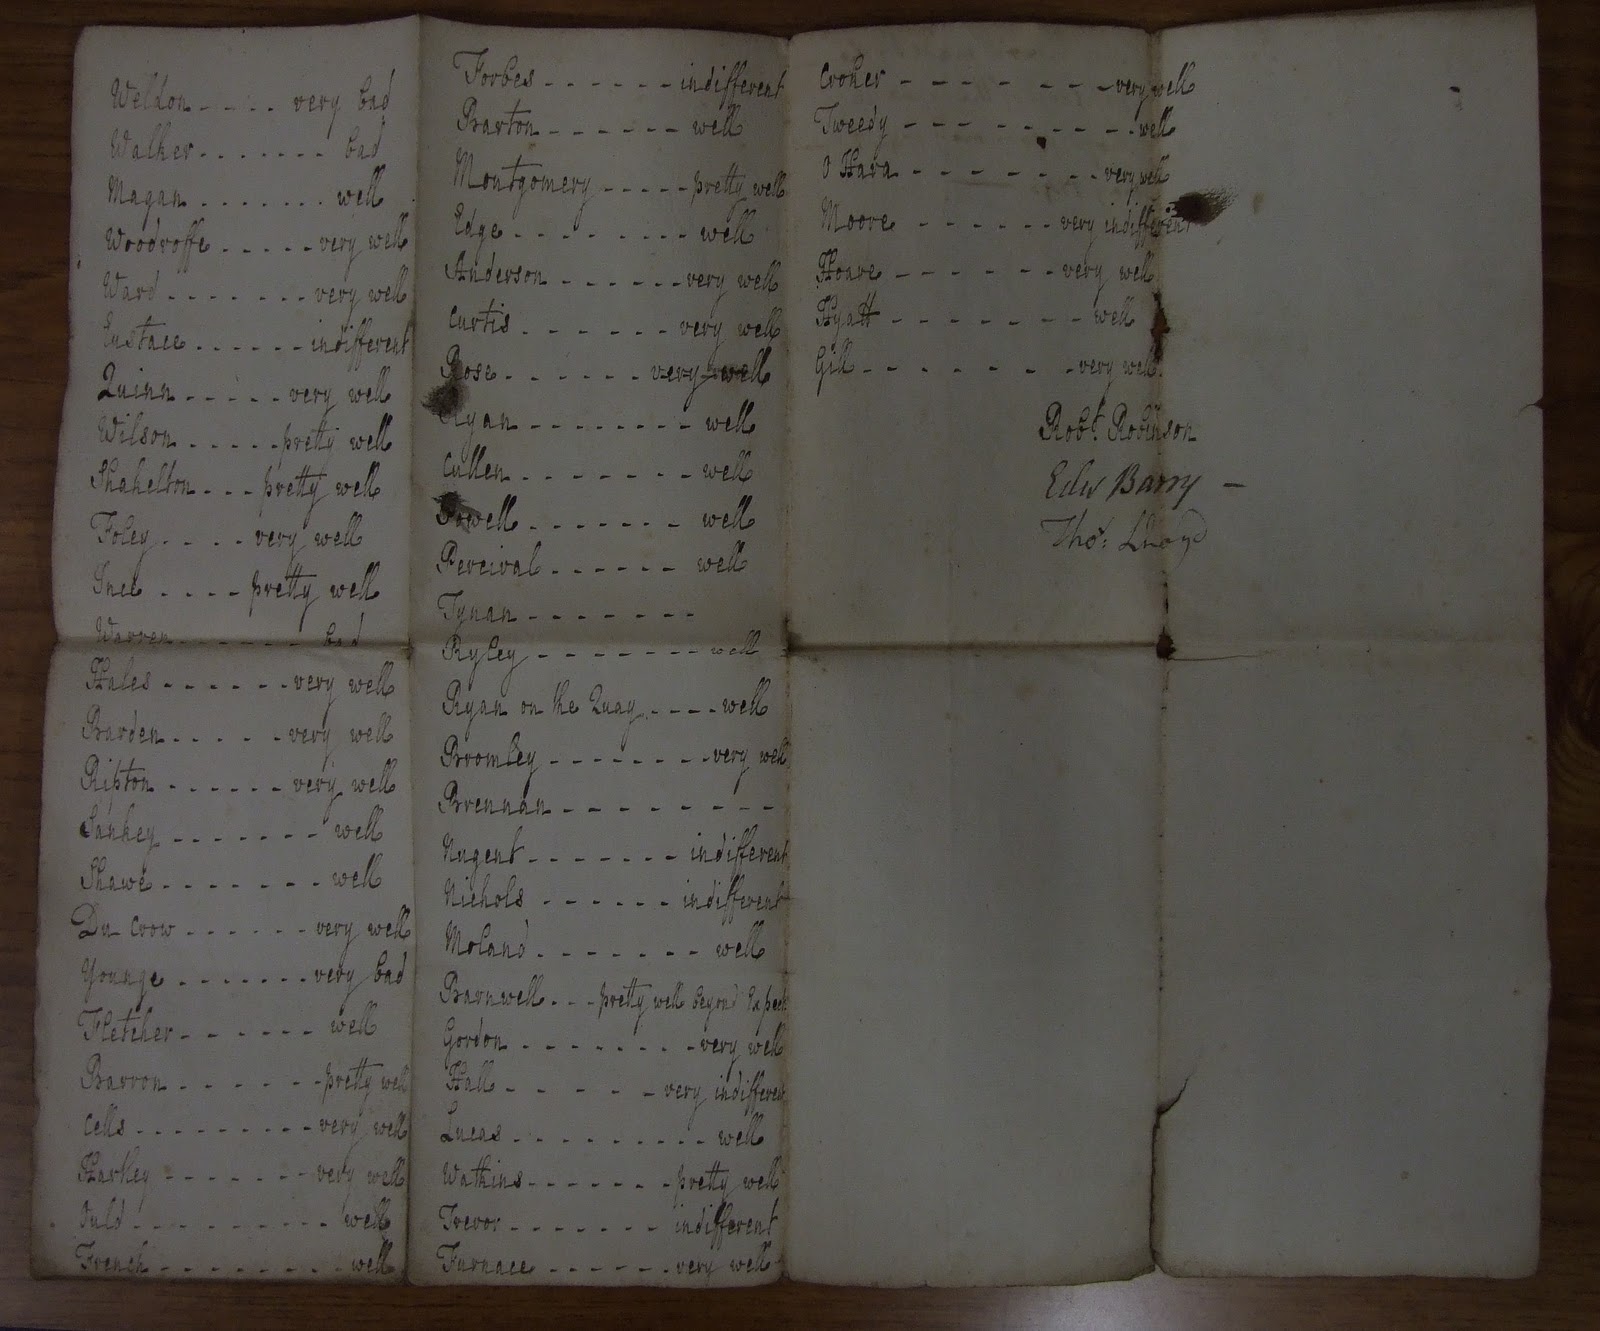 Weldon - - - - very bad
Walker - - - - - - - bad
Magan - - - - - - - - well
Woodroffe - - - - - very well
Ward - - - - - - - very well
Eustace - - - - - - indifferent
Quinn - - - - - very well
Wilson - - - - - pretty well
Shakelton - - - pretty well
Foley - - - - very well
Inee - - - - pretty well
Warren - - - - - - - bad
Hales - - - - - - very well
Barden - - - - - very well
Ripton - - - - - - very well
Sankey - - - - - - - well
Shawe - - - - - - - well
Du Crow - - - - - - very well
Younge - - - - - - - very bad
Fletcher - - - - - - well
Barron - - - - - - - pretty well
Cells - - - - - - - - - very well
Harkey - - - - - - - very well
Ould - - - - - - - - - - well
French - - - - - - - - - well
Forbes - - - - - - indifferent
Barton - - - - - - - well
Montgomery - - - - - pretty well
Edge - - - - - - - - well
Anderson - - - - - - very well
Curtis - - - - - - - very well
Rose - - - - - - - very well
Ryan - - - - - - - - well
Cullen - - - - - - - well
Powell - - - - - - - well
Percival - - - - - - well
Tynan - - - - - - -
Ryley - - - - - - - - well
Ryan on the Quay - - - - well
Bromley - - - - - - - - very well
Brennan - - - - - - - - -
Nugent - - - - - - - indifferent
Nichols - - - - - - indifferent
Moland - - - - - - - well
Barnwell - - - pretty well beyond Expect
Gordon - - - - - - - - very well
Hall - - - - - - very indifferent
Lucas - - - - - - - - - well
Watkins - - - - - - - pretty well
Trevor - - - - - - - indifferent
Furnace - - - - - - very well
Croker - - - - - - - very well
Tweedy - - - - - - - - well
O Hara - - - - - - - - very well
Moore - - - - - - very indifferent
Hoare - - - - - - very well
Hyatt - - - - - - - - well
Gill - - - - - - - very well
Robt. Robinson
Edw Barry -
Thos: Lloyd